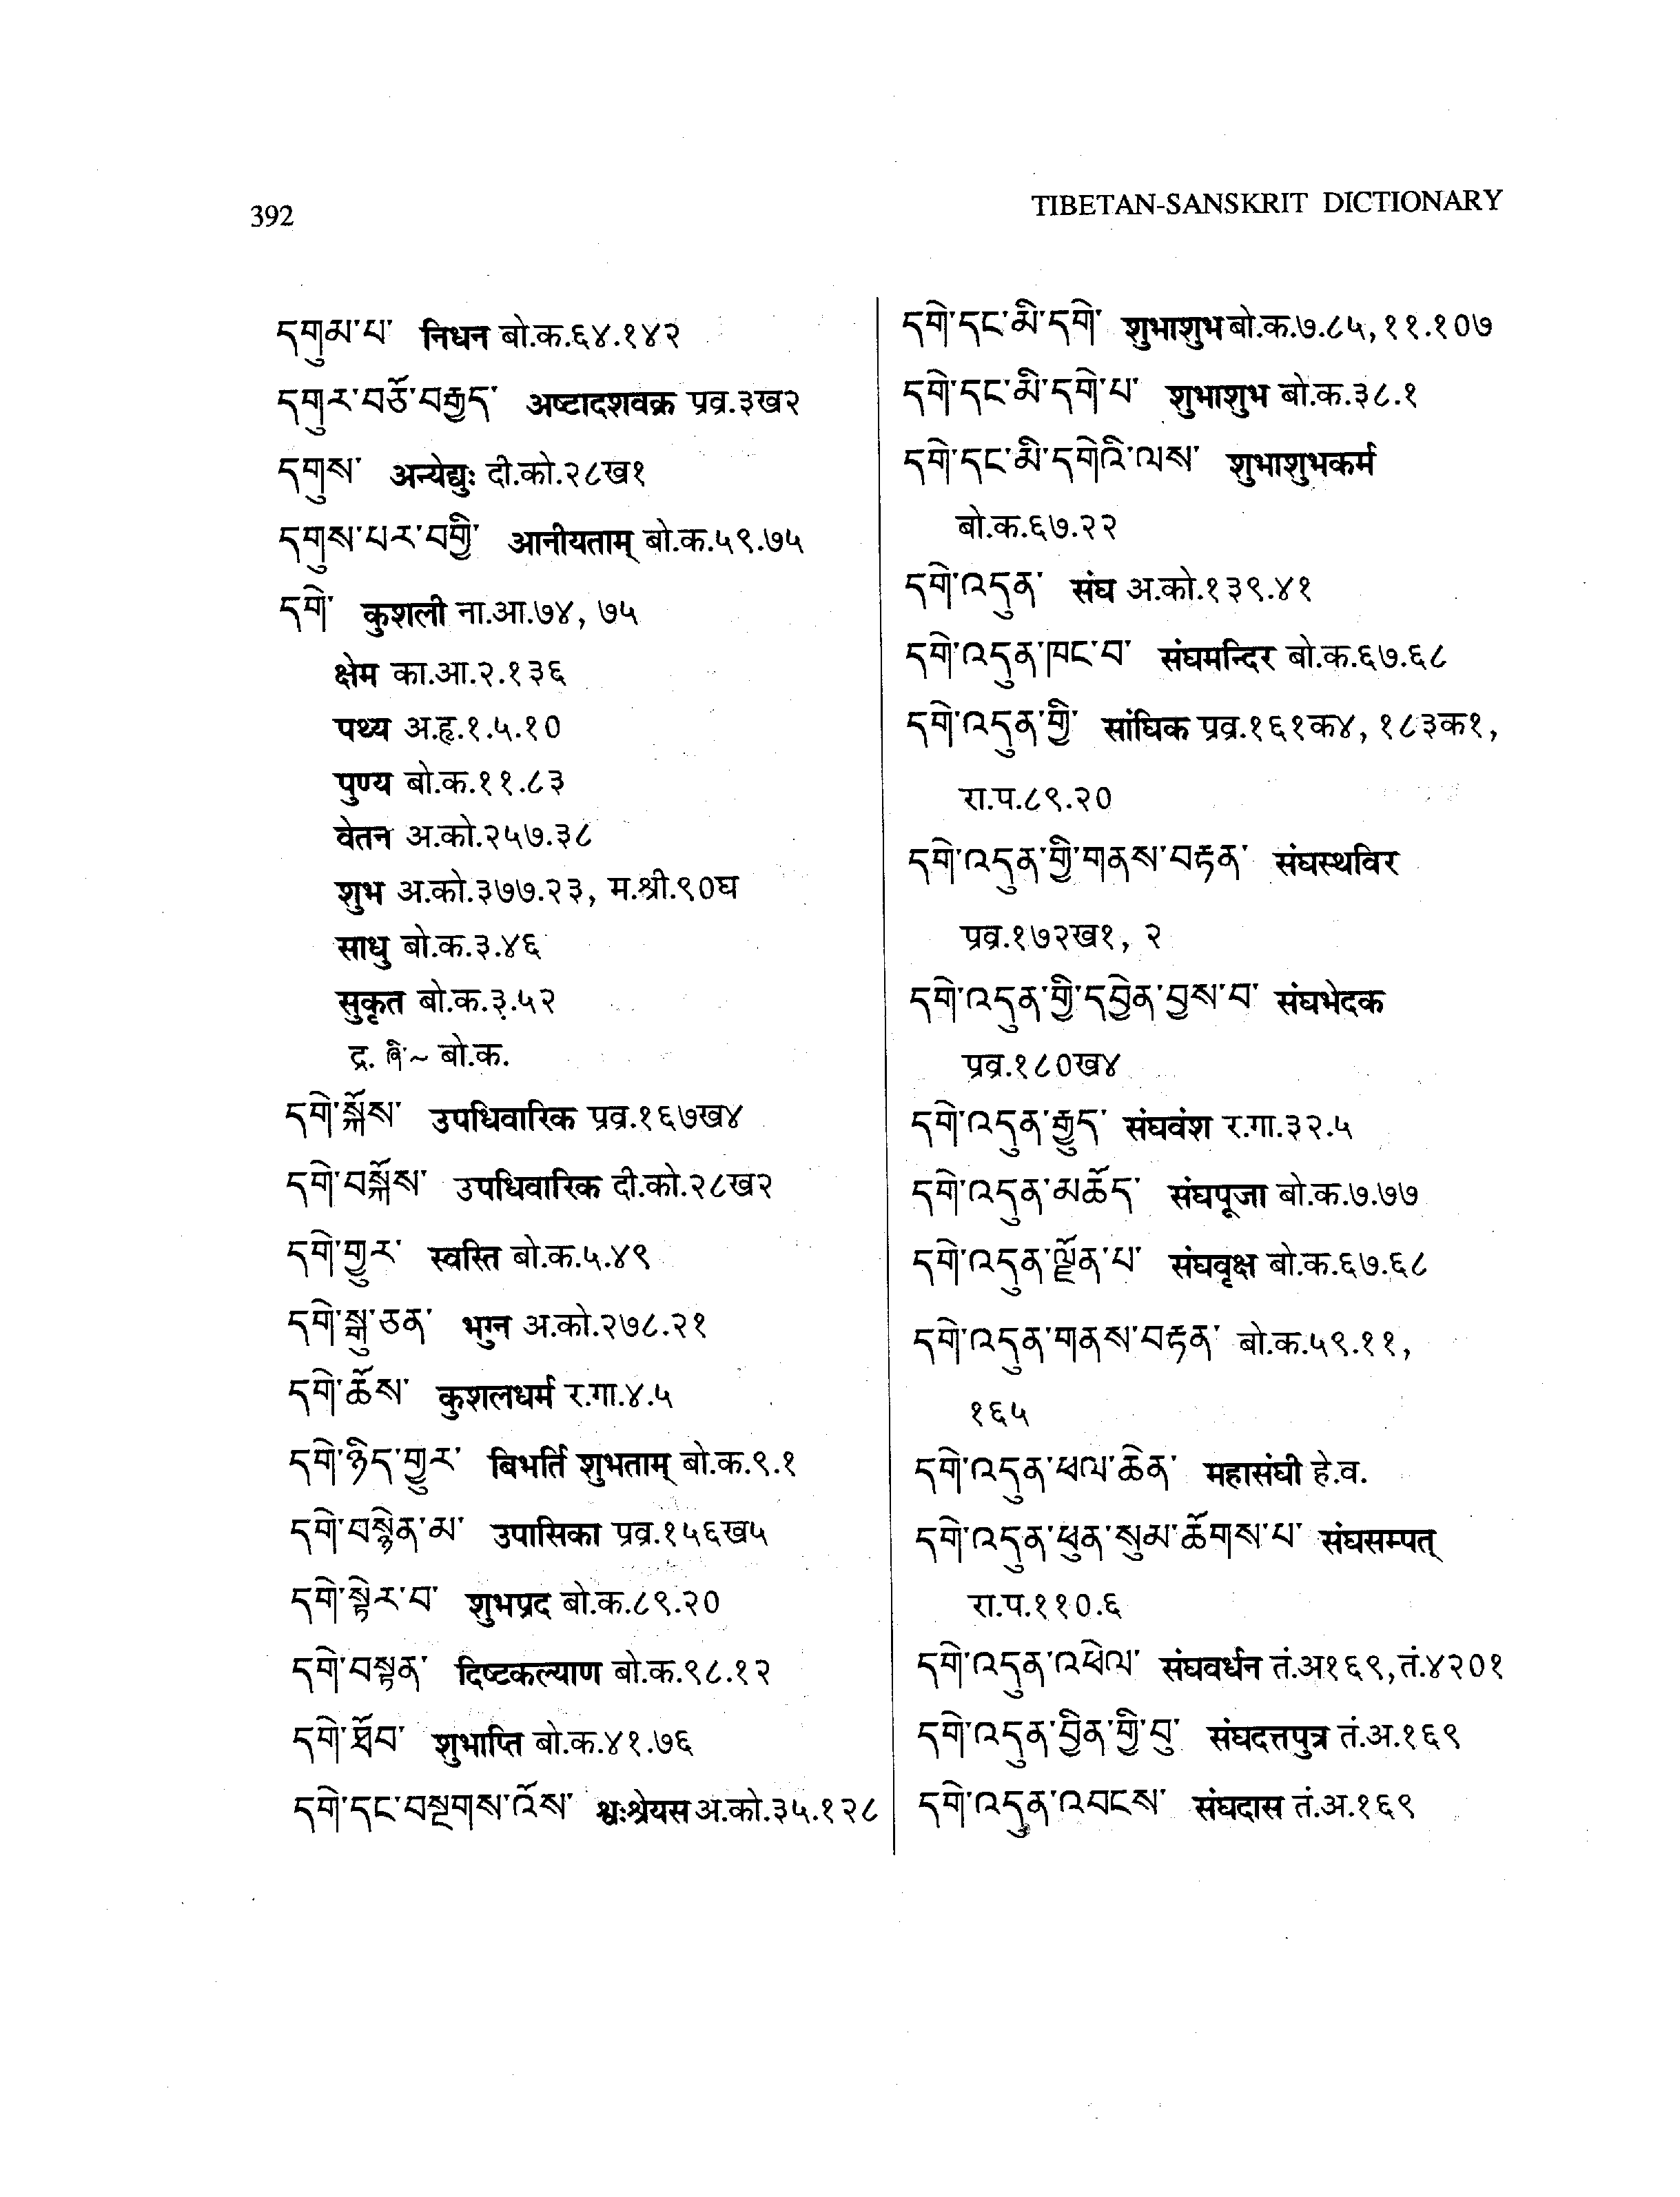 392
TIBETAN-SANSKRIT DICTIONARY
དགུམ་པ་ निधन बो.क.६४.१४२
དགུར་བཅོ་བརྒྱད་ अष्टादशवक्र प्रव्र.३ख२
དགུས་ अन्येद्युः दी.को.२८ख१
དགུས་པར་བགྱི་ आनीयताम् बो.क.५९.७५
དགེ་ कुशली ना.आ.७४, ७५
क्षेम का.आ.२.१३६
पथ्य अ.हृ.१.५.१०
पुण्य बो.क.११.८३
वेतन अ.को.२५७.३८
शुभ अ.को.३७७.२३, म.श्री.९०घ
साधु बो.क.३.४६
सुकृत बो.क.३.५२
द्र. ཞི་~ बो.क.
དགེ་སྐོས་ उपधिवारिक प्रव्र.१६७ख४
དགེ་བསྐོས་ उपधिवारिक दी.को.२८ख२
དགེ་གྱུར་ स्वस्ति बो.क.५.४९
དགེ་སྒུ་ཅན་ भुग्न अ.को.२७८.२१
དགེ་ཆོས་ कुशलधर्म र.गा.४.५
དགེ་ཉིད་གྱུར་ बिभर्ति शुभताम् बो.क.९.१
དགེ་བསྙེན་མ་ उपासिका प्रव्र.१५६ख५
དགེ་སྟེར་བ་ शुभप्रद बो.क.८९.२०
དགེ་བསྟན་ दिष्टकल्याण बो.क.९८.१२
དགེ་ཐོབ་ शुभाप्ति बो.क.४१.७६
དགེ་དང་བསྔགས་འོས་ श्वःश्रेयस अ.को.३५.१२८
དགེ་དང་མི་དགེ་ शुभाशुभ बो.क.७.८५, ११.१०७
དགེ་དང་མི་དགེ་བ་ शुभाशुभ बो.क.३८.१
དགེ་དང་མི་དགེའི་ལས་ शुभाशुभकर्म
बो.क.६७.२२
དགེ་འདུན་ संघ अ.को.१३९.४१
དགེ་འདུན་ཁང་བ་ संघमन्दिर बो.क.६७.६८
དགེ་འདུན་གྱི་ सांघिक प्रव्र.१६१क४, १८३क१,
रा.प.८९.२०
དགེ་འདུན་གྱི་གནས་བརྟན་ संघस्थविर
प्रव्र.१७२ख१, २
དགེ་འདུན་གྱི་དབྱེན་བྱས་བ་ संघभेदक
प्रव्र.१८०ख४
དགེ་འདུན་རྒྱུད་ संघवंश र.गा.३२.५
དགེ་འདུན་མཆོད་ संघपूजा बो.क.७.७७
དགེ་འདུན་ལྗོན་པ་ संघवृक्ष बो.क.६७.६८
དགེ་འདུན་གནས་བརྟན་ बो.क.५९.११,
१६५
དགེ་འདུན་ཕལ་ཆེན་ महासंघी हे.व.
དགེ་འདུན་ཕུན་སུམ་ཚོགས་པ་ संघसम्पत्
रा.प.११०.६
དགེ་འདུན་འཕེལ་ संघवर्धन तं.अ१६९,तं.४२०१
དགེ་འདུན་བྱིན་གྱི་བུ་ संघदत्तपुत्र तं.अ.१६९
དགེ་འདུན་འབངས་ संघदास तं.अ.१६९